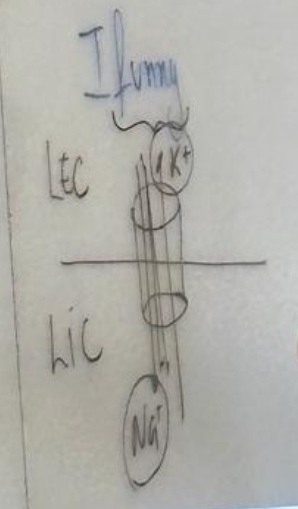 I funny
K⁺
LEC
LiC
Na⁺